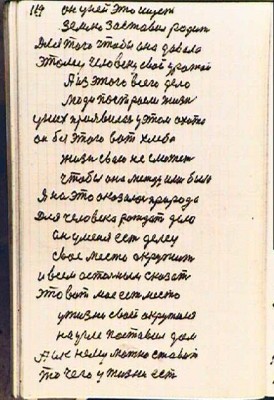 119 он у ней это ищет
Землю заставил родит
Для того чтобы она давала
этому человеку свой урожай
А из этого всего дело
Люди построили жизн
у них появилась у этом охота
он без этого вот хлеба
жизн свою не сможет
чтобы она между ими была
Я на это оказалас природа
Для человека рождат дело
Он у меня ест делец
свое место окружит
и всем остальным сказат
это вот мое ест место
у жизни своей окружил
на угле поставил дом
А и к нему можно ставит
то чего у жизни ест